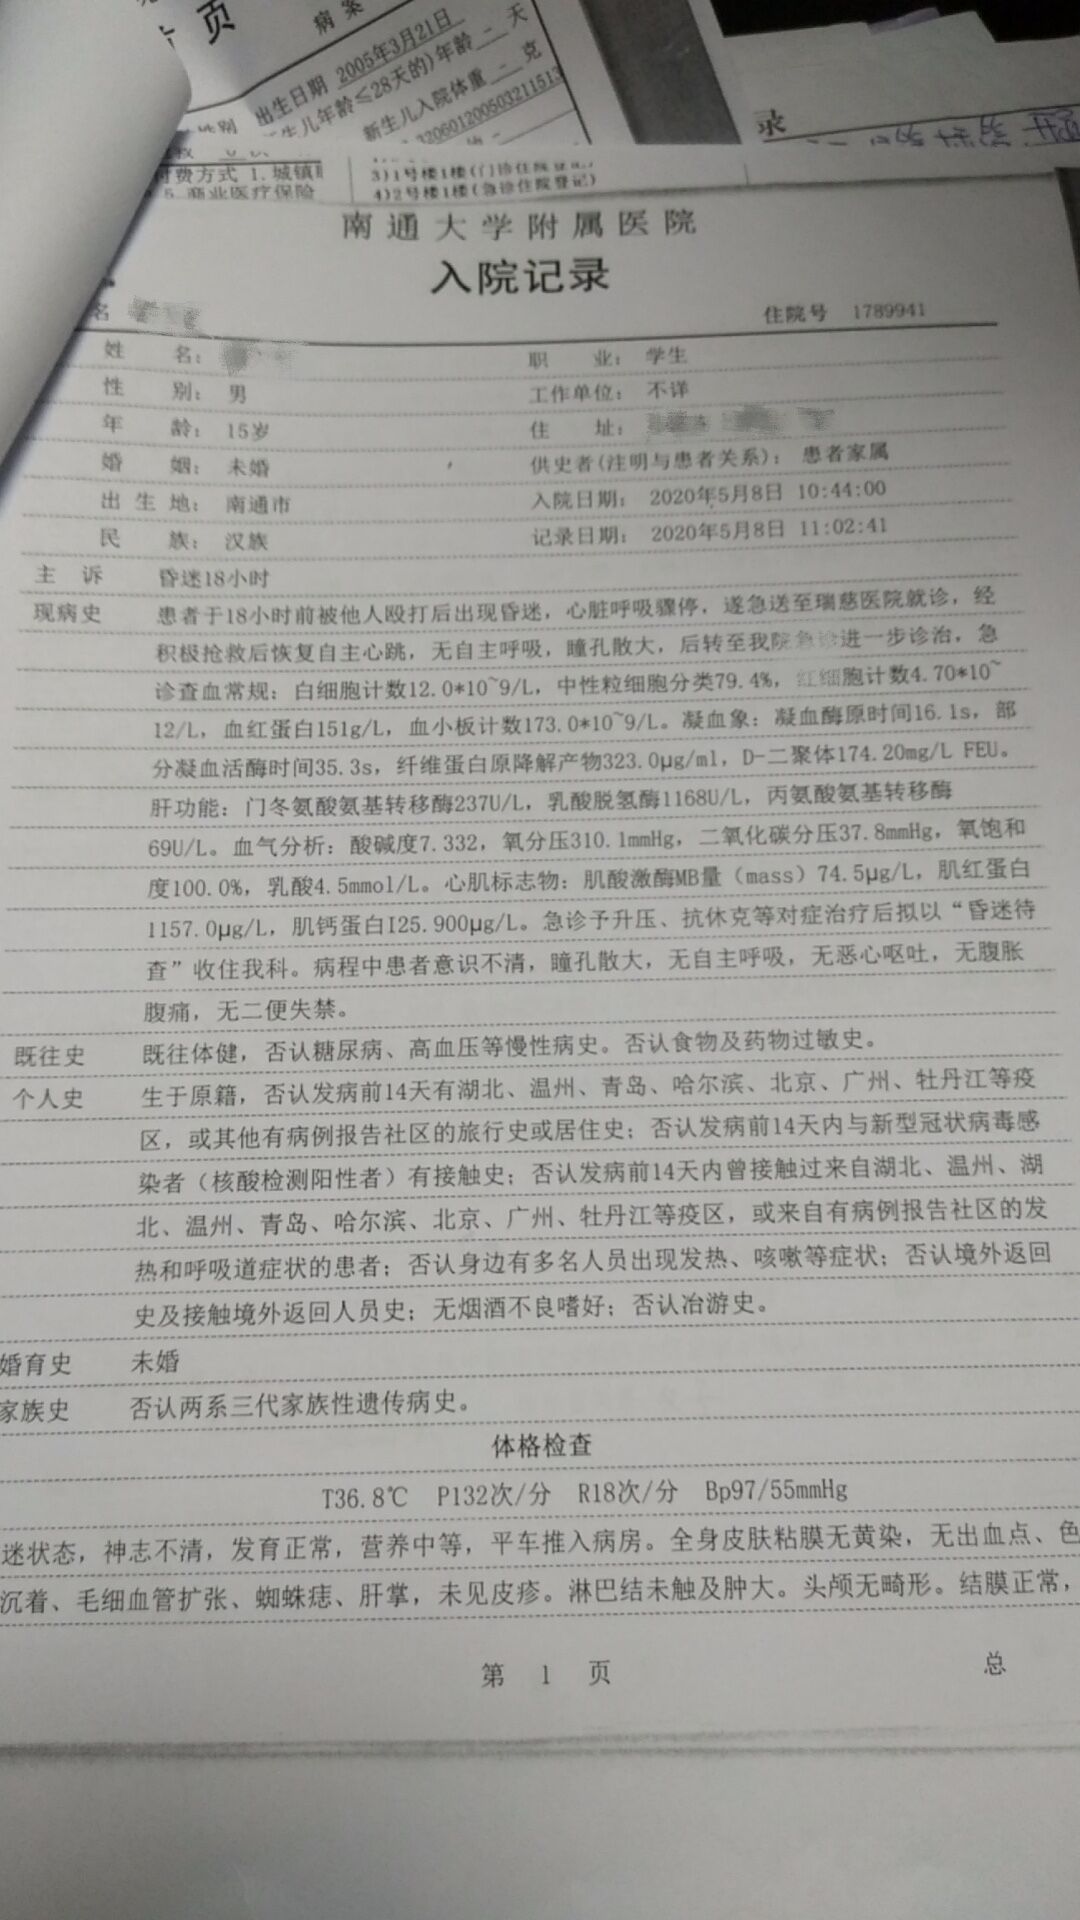 页
病案
出生日期 2005年3月21日
生儿年龄≤28天的)年龄 - 天
新生儿入院体重 - 克
性别
付费方式 1. 城镇
5. 商业医疗保险
3)1号楼1楼(门诊住院登记)
4)2号楼1楼(急诊住院登记)
录
南通大学附属医院
入院记录
名
住院号 1789941
姓 名： 职 业： 学生
性 别： 男 工作单位： 不详
年 龄： 15岁 住 址：
婚 姻： 未婚 供史者(注明与患者关系)： 患者家属
出 生 地： 南通市 入院日期： 2020年5月8日 10:44:00
民 族： 汉族 记录日期： 2020年5月8日 11:02:41
主 诉 昏迷18小时
现病史 患者于18小时前被他人殴打后出现昏迷，心脏呼吸骤停，遂急送至瑞慈医院就诊，经
积极抢救后恢复自主心跳，无自主呼吸，瞳孔散大，后转至我院急诊进一步诊治，急
诊查血常规：白细胞计数12.0*10~9/L，中性粒细胞分类79.4%，红细胞计数4.70*10~
12/L，血红蛋白151g/L，血小板计数173.0*10~9/L。凝血象：凝血酶原时间16.1s，部
分凝血活酶时间35.3s，纤维蛋白原降解产物323.0μg/ml，D-二聚体174.20mg/L FEU。
肝功能：门冬氨酸氨基转移酶237U/L，乳酸脱氢酶1168U/L，丙氨酸氨基转移酶
69U/L。血气分析：酸碱度7.332，氧分压310.1mmHg，二氧化碳分压37.8mmHg，氧饱和
度100.0%，乳酸4.5mmol/L。心肌标志物：肌酸激酶MB量（mass）74.5μg/L，肌红蛋白
1157.0μg/L，肌钙蛋白I25.900μg/L。急诊予升压、抗休克等对症治疗后拟以“昏迷待
查”收住我科。病程中患者意识不清，瞳孔散大，无自主呼吸，无恶心呕吐，无腹胀
腹痛，无二便失禁。
既往史 既往体健，否认糖尿病、高血压等慢性病史。否认食物及药物过敏史。
个人史 生于原籍，否认发病前14天有湖北、温州、青岛、哈尔滨、北京、广州、牡丹江等疫
区，或其他有病例报告社区的旅行史或居住史；否认发病前14天内与新型冠状病毒感
染者（核酸检测阳性者）有接触史；否认发病前14天内曾接触过来自湖北、温州、湖
北、温州、青岛、哈尔滨、北京、广州、牡丹江等疫区，或来自有病例报告社区的发
热和呼吸道症状的患者；否认身边有多名人员出现发热、咳嗽等症状；否认境外返回
史及接触境外返回人员史；无烟酒不良嗜好；否认冶游史。
婚育史 未婚
家族史 否认两系三代家族性遗传病史。
体格检查
T36.8℃ P132次/分 R18次/分 Bp97/55mmHg
迷状态，神志不清，发育正常，营养中等，平车推入病房。全身皮肤粘膜无黄染，无出血点、色
沉着、毛细血管扩张、蜘蛛痣、肝掌，未见皮疹。淋巴结未触及肿大。头颅无畸形。结膜正常，
第 1 页
总